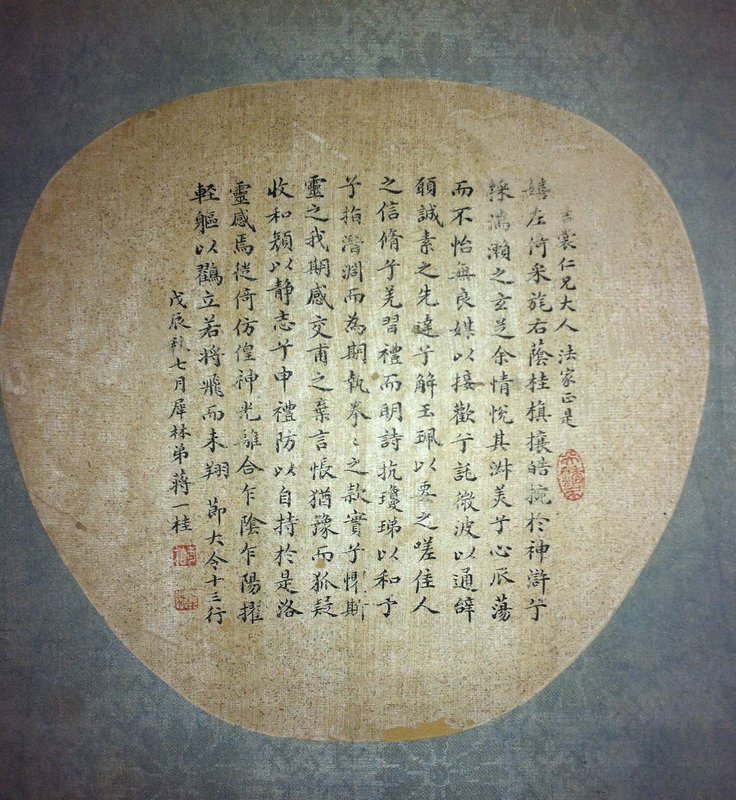 裳仁兄大人 法家正是
嬉左倚采旄右蔭桂旗攘皓捥於神滸兮
採湍瀨之玄芝余情悅其淑美兮心辰蕩
而不怡無良媒以接歡兮託微波以通辞
願誠素之先達兮解玉珮以要之嗟佳人
之信脩兮羌習禮而明詩抗瓊珶以和予
兮指潛淵而為期執拳〻之款實兮懼斯
靈之我期感交甫之棄言悵猶豫而狐疑
收和顏以静志兮申禮防以自持於是洛
靈感焉徙倚仿偟神光離合乍陰乍陽擢
輕軀以鸖立若將飛而未翔 節大令十三行
戊辰秋七月犀林弟蔣一桂